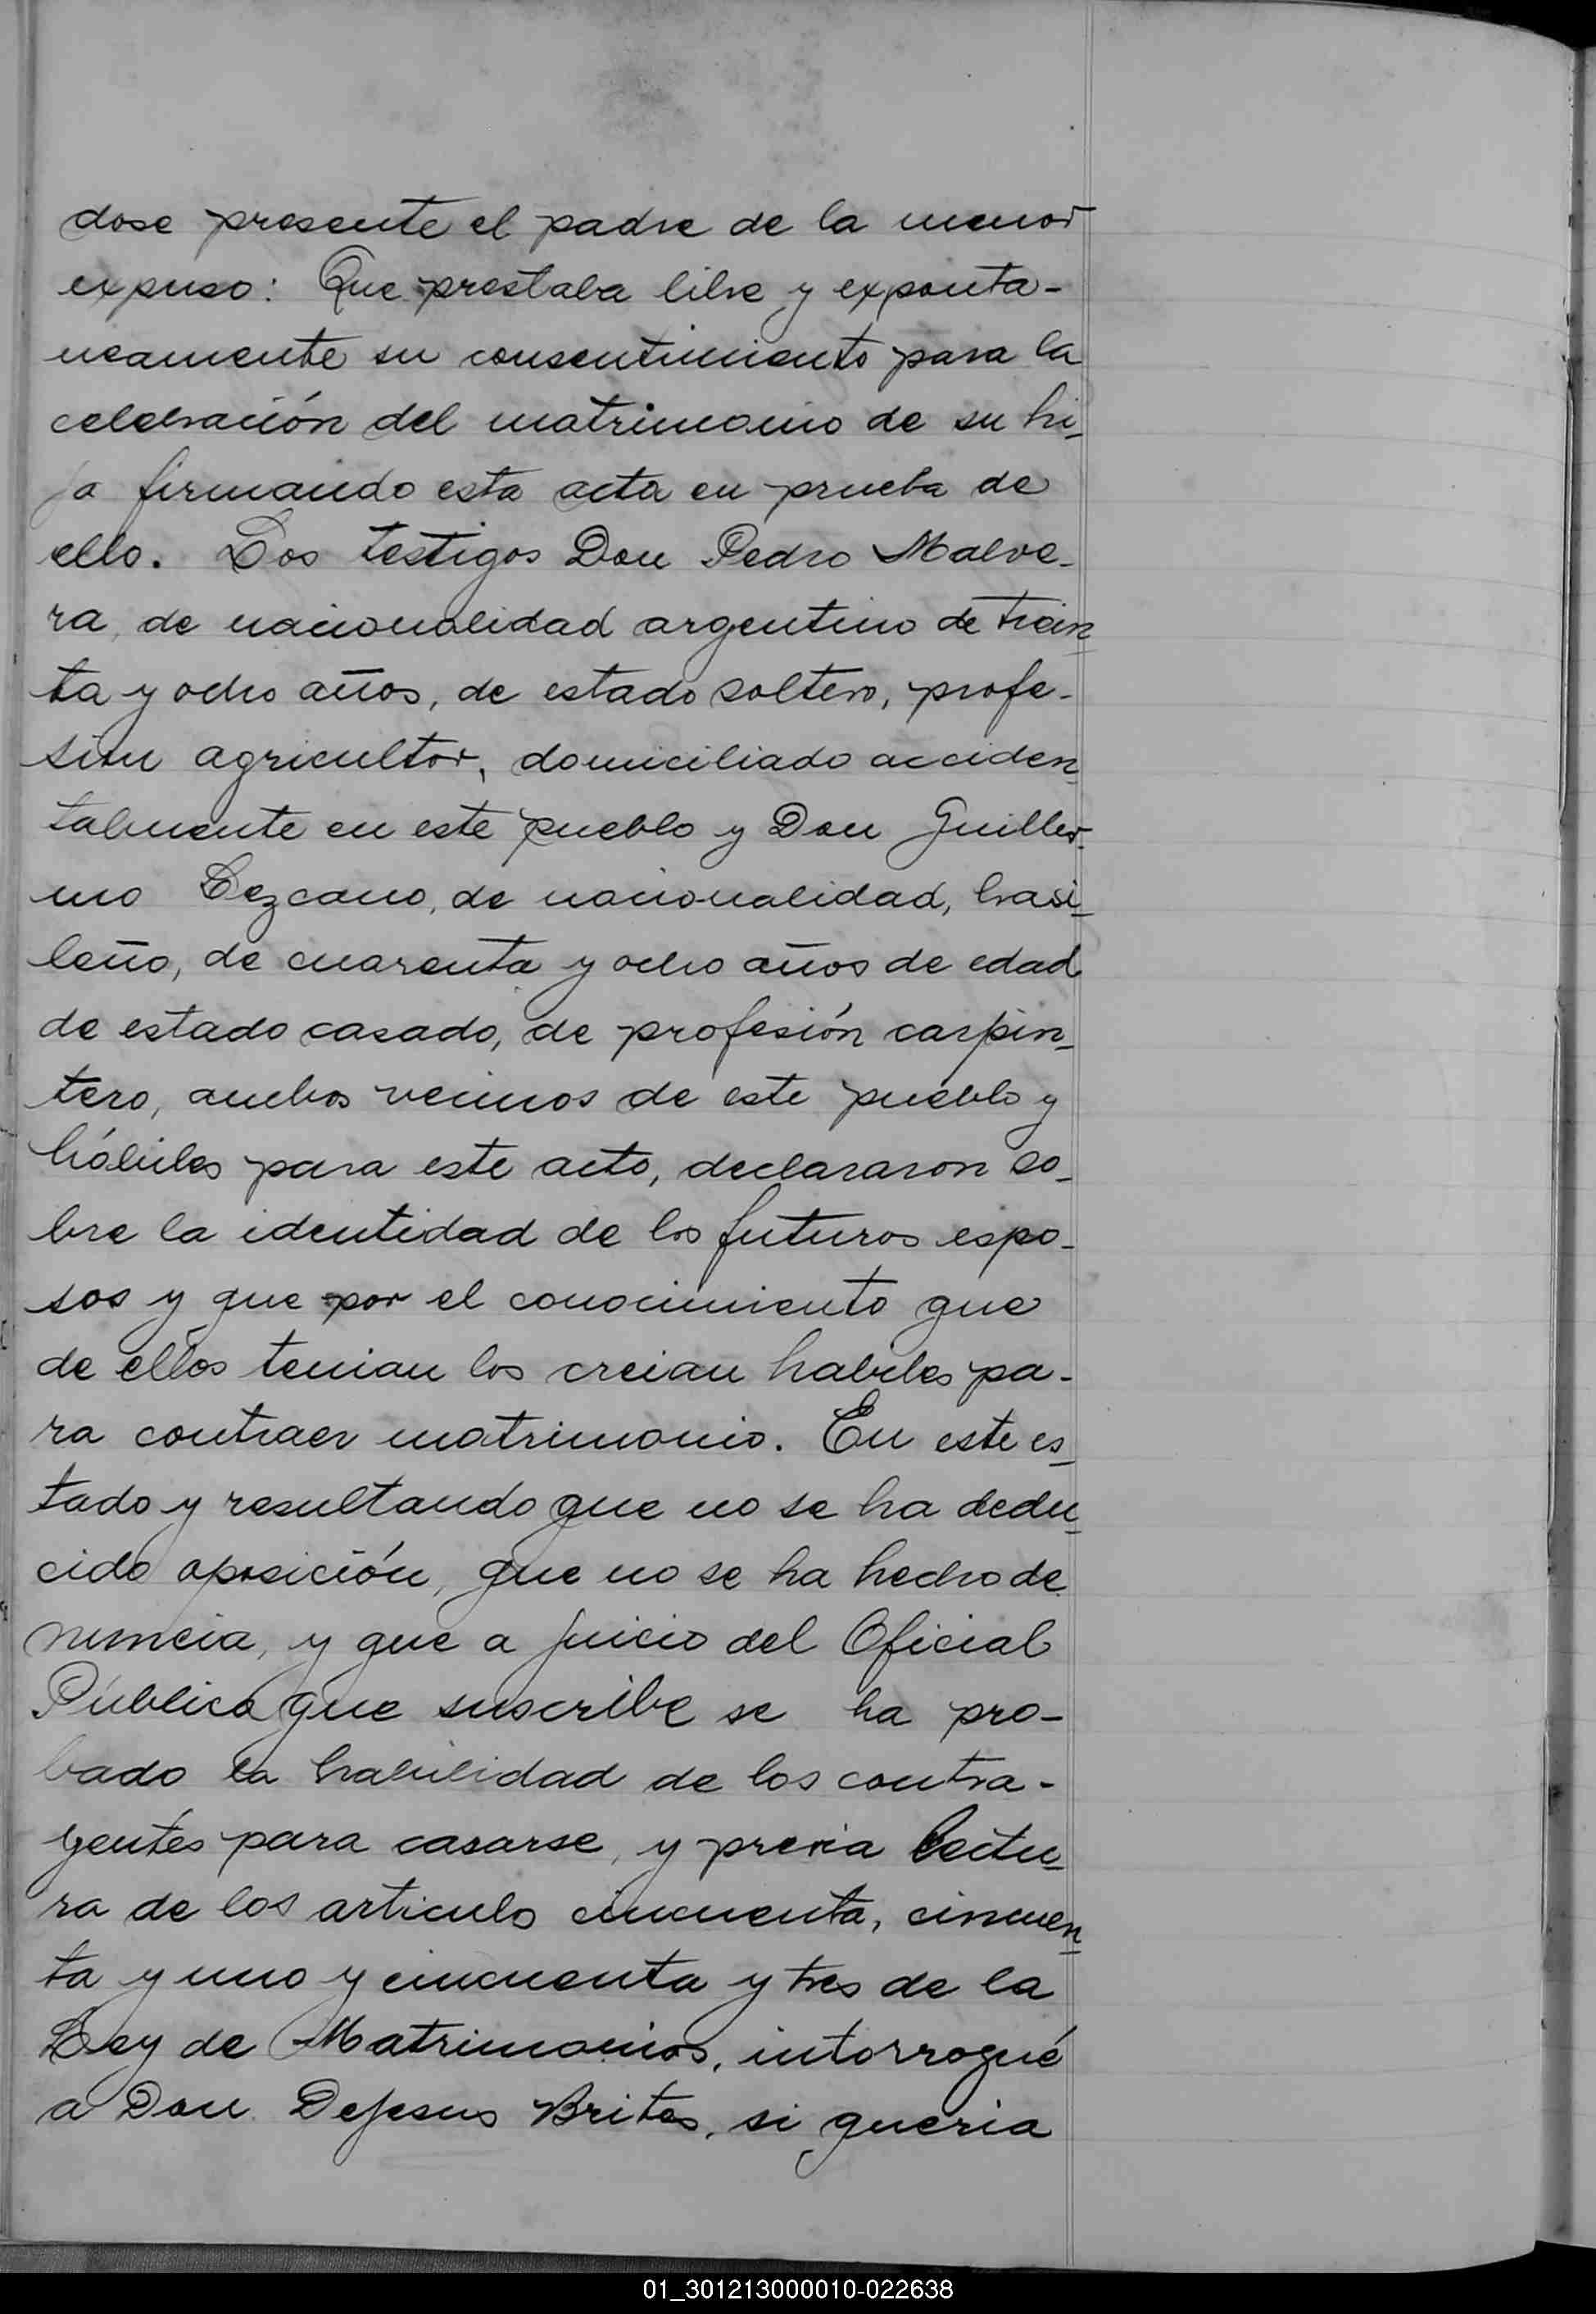 dose presente el padre de la menor
expuso: Que prestaba libre y exponta-
neamente su consentimiento para la
celebración del matrimonio de su hi-
ja firmando esta acta en prueba de
ello. Los testigos Don Pedro Malve-
ra, de nacionalidad argentino de trein
ta y ocho años, de estado soltero, profe-
sion agricultor, domiciliado acciden
talmente en este pueblo y Don Guiller-
mo Lezcano, de nacionalidad, brasi-
leño, de cuarenta y ocho años de edad
de estado casado, de profesión carpin-
tero, ambos vecinos de este pueblo y
hábiles para este acto, declararon so-
bre la identidad de los futuros espo-
sos y que por el conocimiento que
de ellos tenian los creian habiles pa-
ra contraer matrimonio. En este es-
tado y resultando que no se ha dedu-
cido oposición, que no se ha hecho de
nuncia, y que a juicio del Oficial
Público que suscribe se ha pro-
bado la habilidad de los contra-
yentes para casarse, y previa lectu-
ra de los articulo cincuenta, cincuen-
ta y uno y cincuenta y tres de la
Ley de Matrimonios, intorrogué
a Don Dejesus Brites, si queria
01_301213000010-022638